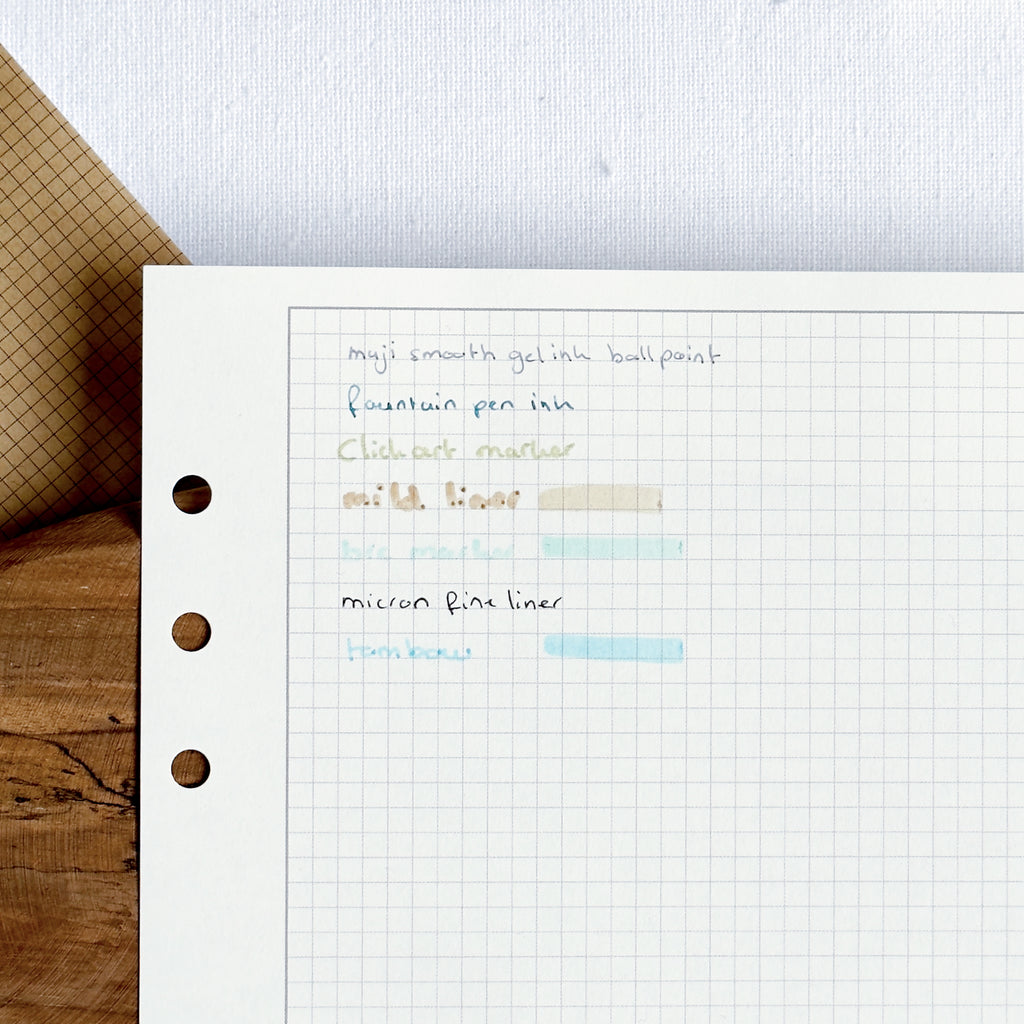 muji smooth gel ink ballpoint
fountain pen ink
Clickart marker
mild liner
bic marker
micron fine liner
tombow